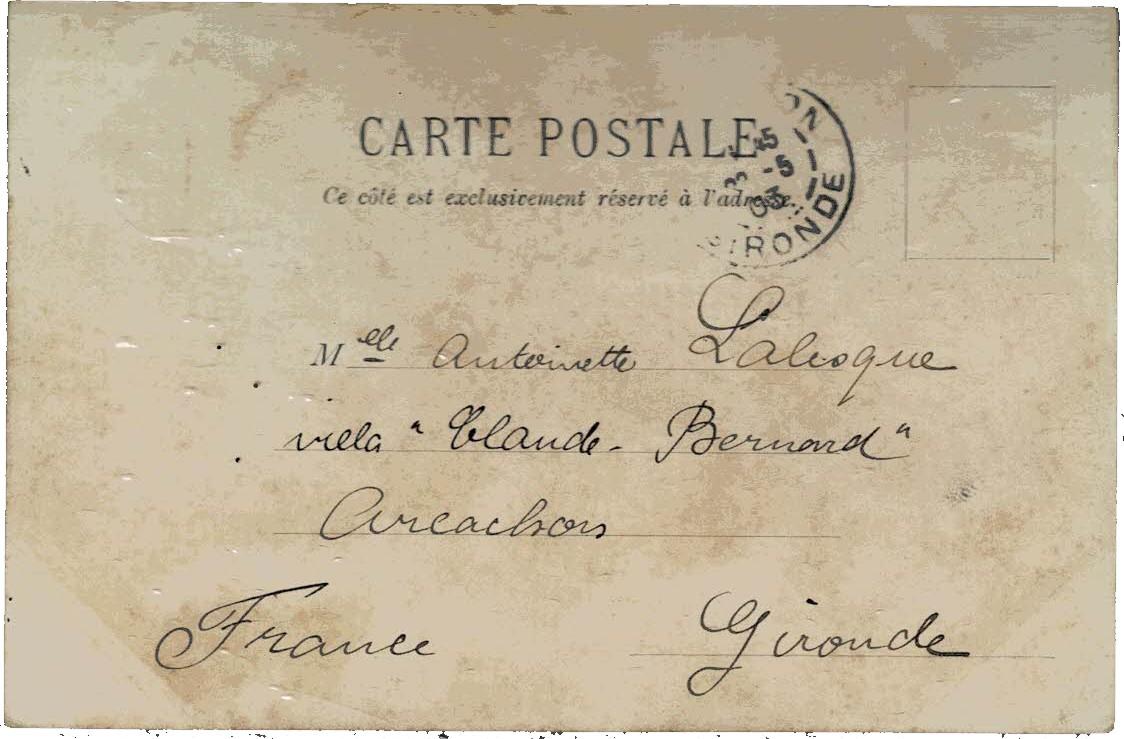 CARTE POSTALE
Ce côté est exclusivement réservé à l'adresse.
ON
45
-5
03
GIRONDE
Melle Antoinette
villa "Claude-Bernard"
Arcachon
France Gironde